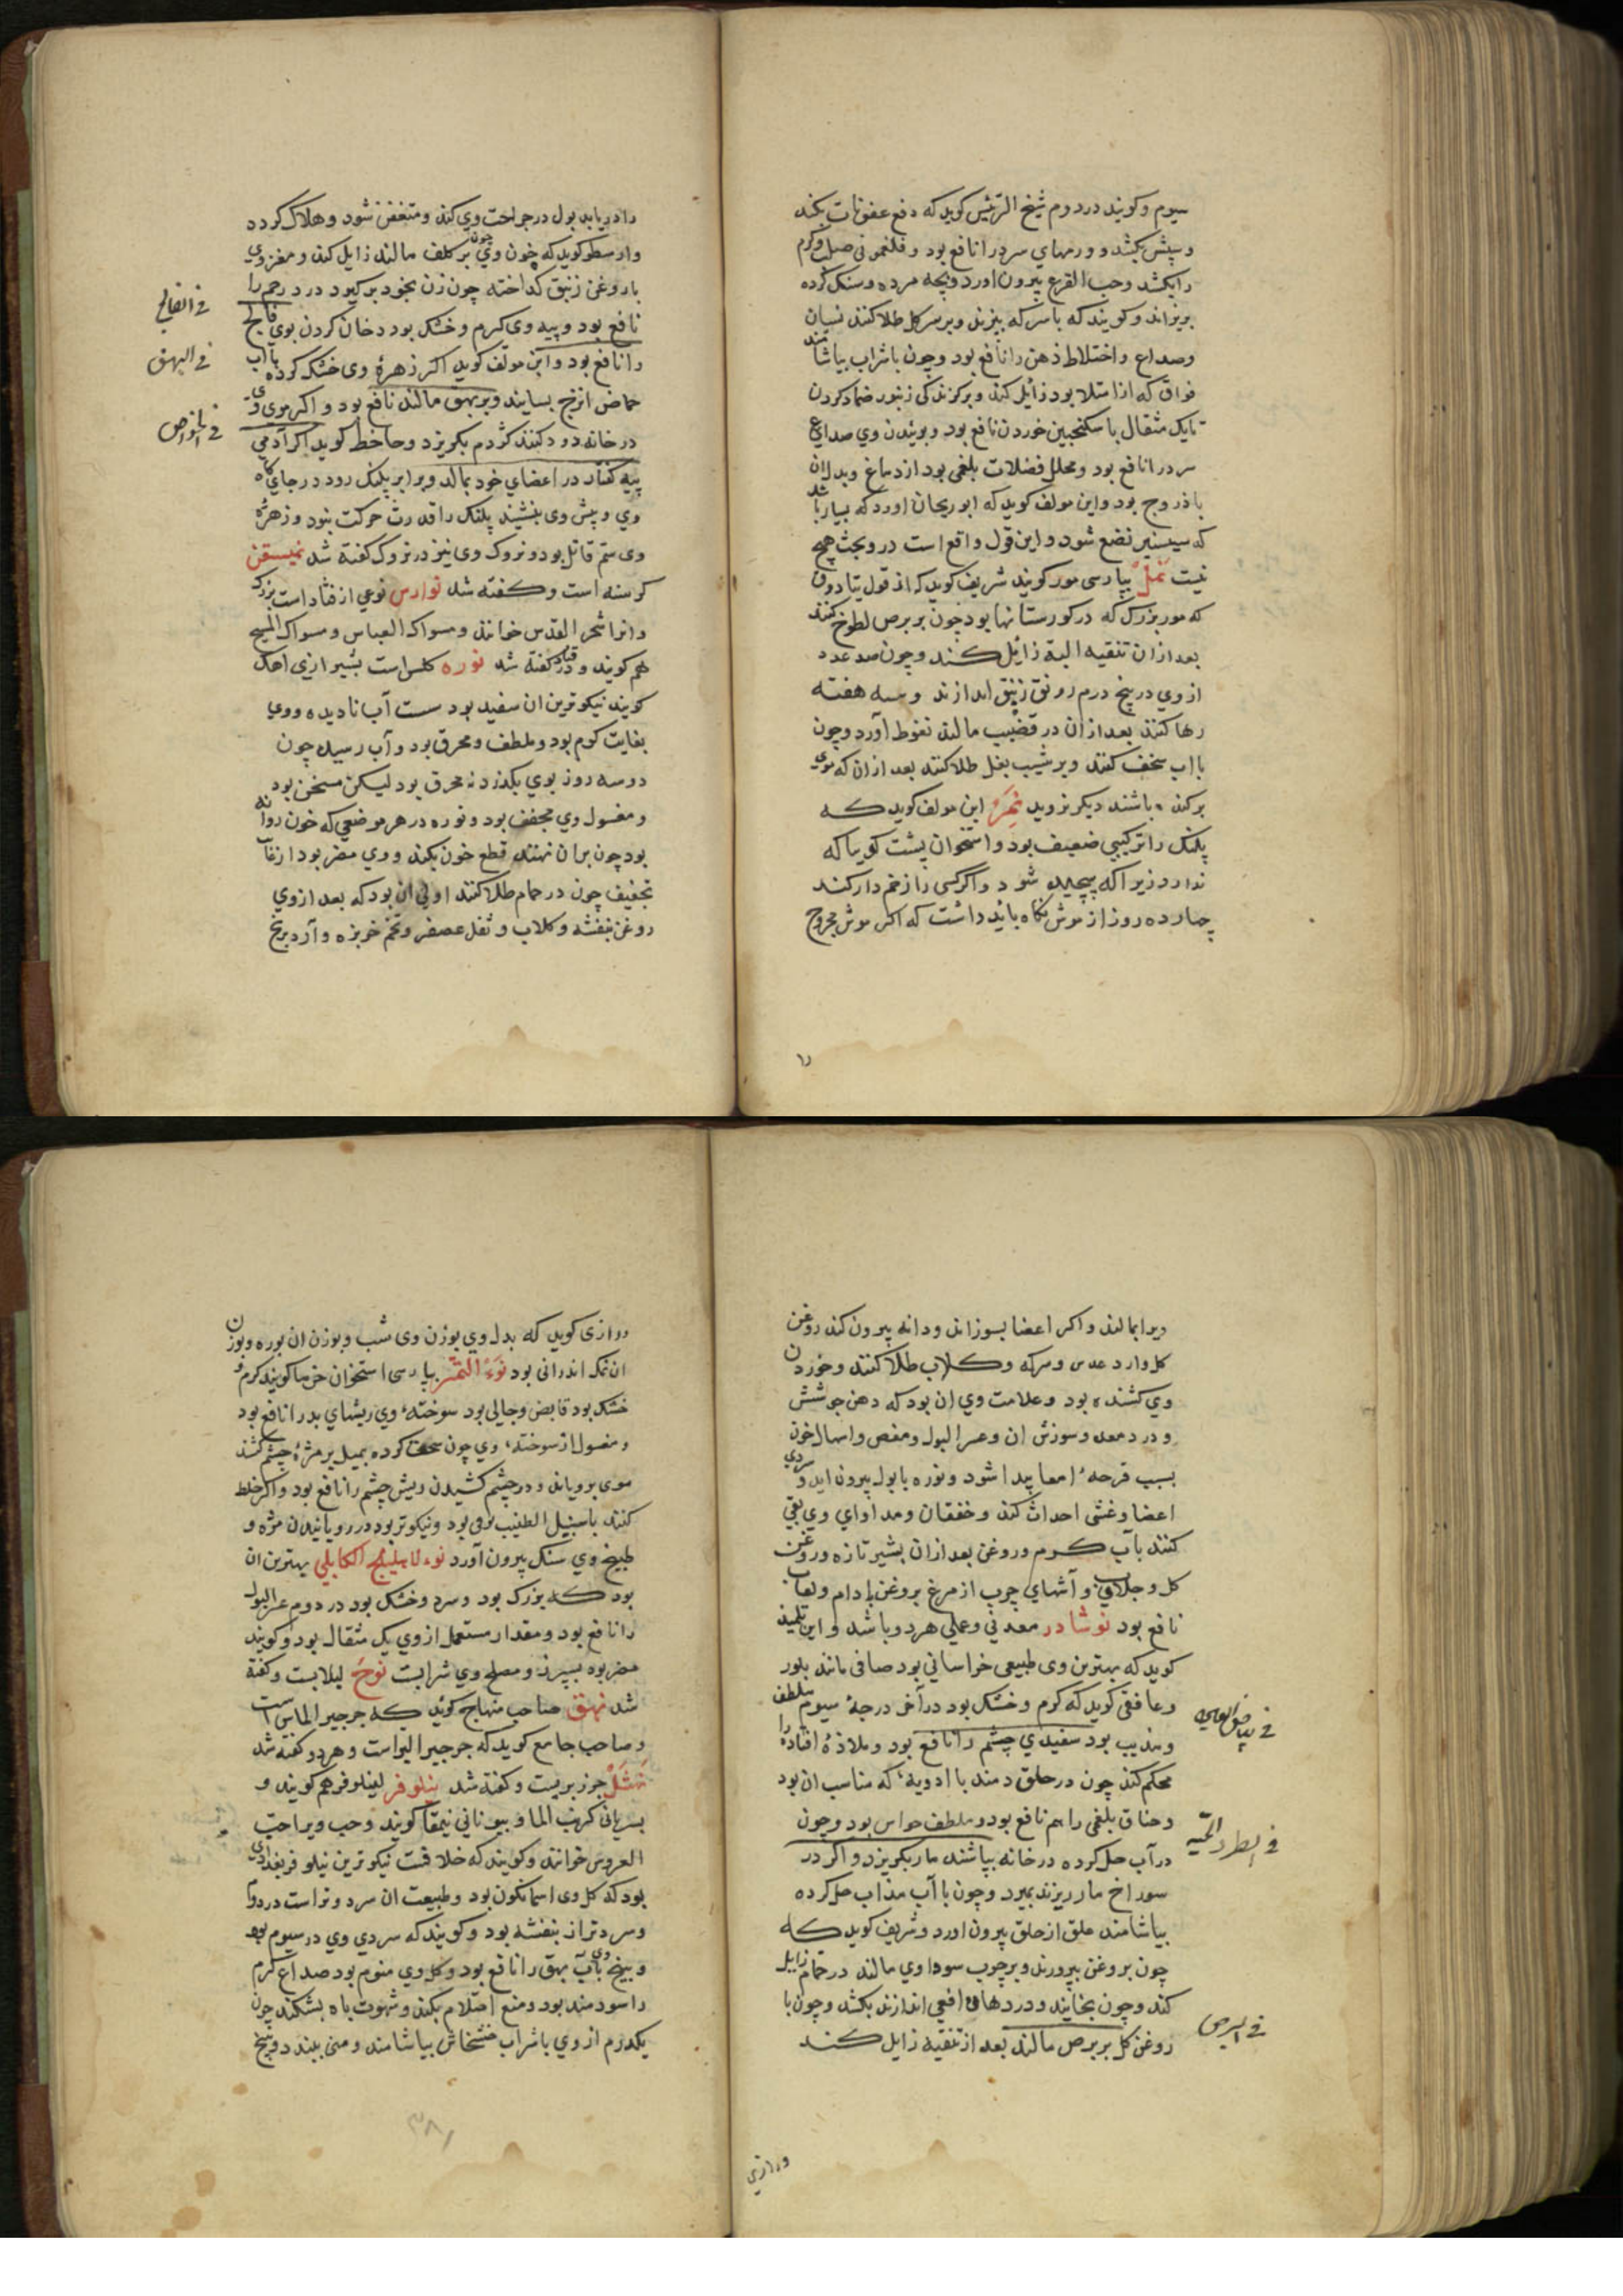 سیوم و کویند در دوم شیخ الرئیس کوید که دفع عفونات بکند
و سپش بکشد و ورمهای سرد را نافع بود و فلغمونی صلب و کرم
را بکشد و حب القرع بیرون اورد و بچه مرده و سنک کرده
بریزاند و کویند که با سرکه بپزند و بر سر کل طلا کنند نسیان
و صداع و اختلاط ذهن را نافع بود و چون با شراب بیاشامند
فواق که از امتلا بود زایل کند و بر کزندکی زنبور ضماد کردن
تا یک مثقال با سکنجبین خوردن نافع بود و بوئیدن وی صداع
سرد را نافع بود و محلل فضلات بلغمی بود از دماغ و بدل ان
باذروج بود و این مولف کوید که ابوریحان اورد که بسیار باشد
که سیسنبر نعنع شود و این قول واقع است در و بحث هیچ
نیست نمل بپارسی مور کویند شریف کوید که از قول تیادوق
که مور بزرک که در کورستانها بود چون بر برص لطوخ کنند
بعد از ان تنقیه البته زائل کند و چون صد عدد
از وی در پنج درم روغن زنبق اندازند و سه هفته
رها کنند بعد از ان در قضیب مالند نغوظ آورد و چون
با اب سخف کنند و بر شیب بغل طلا کنند بعد از ان که موی
برکنده باشند دیکر نروید نمر این مولف کوید که
پلنک را ترکیبی ضعیف بود و استخوان پشت کویا که
ندارد زیرا که پیچیده شود و اکر کسی را زخم دار کند
چهارده روز از موش نکاه باید داشت که اکر موش مجروح
را دریابد بول در جراحت وی کند و متعفن شود و هلاک کردد
و ارسطو کوید که چون وی چون بر کلف مالند زایل کند و مغز وی
با روغن زنبق کداخته چون زن بخود برکیرد درد رحم را
نافع بود و پیه وی کرم و خشک بود دخان کردن بوی فالج
را نافع بود و ابن مولف کوید اکر زهره وی خشک کرده باآب
حماض اترج بسایند و بر بهق مالند نافع بود و اکر موی وی
در خانه دود کنند کژدم بکریزد و جاحظ کوید اکر آدمی
پیه کفتار در اعضای خود بمالد و برابر پلنک رود در جایکاه
وی و پیش وی بنشیند پلنک را قدرت حرکت نبود و زهرهٔ
وی ستم قاتل بود و نروک وی نیز در نروک کفته شد نمیسقن
کرسنه است و کفته شد نوارس نوعی از قتاد است بزرک
و انرا شجر القدس خوانند و مسواک العباس و مسواک المسیح
هم کویند و در قتاد کفته شد نوره کلس است بشیرازی اهک
کویند نیکوترین ان سفید بود ست آب نادیده و وی
بغایت کوم بود و ملطف و محرق بود و آب رسیده چون
دو سه روز بوی بکذرد نه محرق بود لیکن مسخن بود
و مغسول وی مجفف بود و نوره در هر موضعی که خون روانه
بود چون بران نهند قطع خون بکند و وی مضر بود از غایت
تجفیف چون در حمام طلا کنند اولی ان بود که بعد از وی
روغن بنفشه و کلاب و ثفل عصفر و تخم خربزه و آرد برنج
فی الفالج
فی البهق
فی الخواص
ویرا بمالند و اکر اعضا بسوزاند و دانه بیرون کند روغن
کل و ارد عدس و سرکه و کلاب طلا کنند و خوردن
وی کشنده بود و علامت وی ان بود که دهن جوشش
و درد معده و سوزش ان و عسر البول و مغص و اسهال خون
بسبب قرحهٔ امعا پیدا شود و نوره با بول بیرون اید و سردی
اعضا و غشی احداث کند و خفقان و مداوای وی بقی
کنند بآب کرم و روغن بعد از ان بشیر تازه و روغن
کل و جلاب و آشهای چرب از مرغ بروغن بادام و لعاب
نافع بود نوشادر معدنی و عملی هر دو باشد و ابن تلمیذ
کوید که بهترین وی طبیعی خراسانی بود صافی مانند بلور
و غافقی کوید که کرم و خشک بود در آخر درجهٔ سیوم ملطف
و مذیب بود سفیدی چشم را نافع بود و ملاذهٔ افتاده را
محکم کند چون در حلق دمند با ادویهٔ که مناسب ان بود
و خناق بلغمی را هم نافع بود و ملطف حواس بود و چون
در آب حل کرده در خانه بپاشند مار بکریزد و اکر در
سوراخ مار ریزند بمیرد و چون با آب سذاب حل کرده
بیاشامند علق از حلق بیرون اورد و شریف کوید که
چون بروغن بپرورند و بر جرب سوداوی مالند در حمام زایل
کند و چون بخایند و در دهان افعی اندازند بکشد و چون با
روغن کل بر برص مالند بعد از تنقیه زایل کند
فی بیاض العین
فی طرد الحیه
فی البرص
و رازی
و رازی کوید که بدل وی بوزن وی شب و بوزن ان بوره و بوزن
ان نمک اندرانی بود نوی التمر بپارسی استخوان خرما کویند کرم و
خشک بود قابض و جالی بود سوختهٔ وی ریشهای بد را نافع بود
و مغسول از سوختهٔ وی چون سحق کرده بمیل بر مژهٔ چشم کشند
موی برویاند و در چشم کشیدن ریش چشم را نافع بود و اکر خلط
کنند با سنبل الطیب نوعی بود و نیکوتر بود در رویانیدن مژه و
طبیخ وی سنک بیرون آورد نوی الاهلیلج الکابلی بهترین ان
بود که بزرک بود و سرد و خشک بود در دوم عسر البول
را نافع بود و مقدار مستعمل از وی یک مثقال بود و کویند
مضر بود بسپرز و مصلح وی شرابست نوح لبلابست و کفته
شد نهق صاحب منهاج کوید که جرجیر الماس است
و صاحب جامع کوید که جرجیر البر است و هر دو کفته شد
نهشل جزر بریست و کفته شد نیلوفر لینلوفر هم کویند و
بسریانی کرنب الما و بیونانی نیمفا کویند و حب ویرا حب
العروس خوانند و کویند که خلافست نیکوترین نیلوفر بغدادی
بود که کل وی اسمانکون بود و طبیعت ان سرد و تر است در دوم
و سردتر از بنفشه بود و کویند که سردی وی در سیوم بود
و بیخ وی بآب بهق را نافع بود و کل وی منوم بود صداع کرم
را سودمند بود و منع احتلام بکند و شهوت باه بشکند چون
یکدرم از وی با شراب خشخاش بیاشامند و منی ببندد و بیخ
۳۸۱